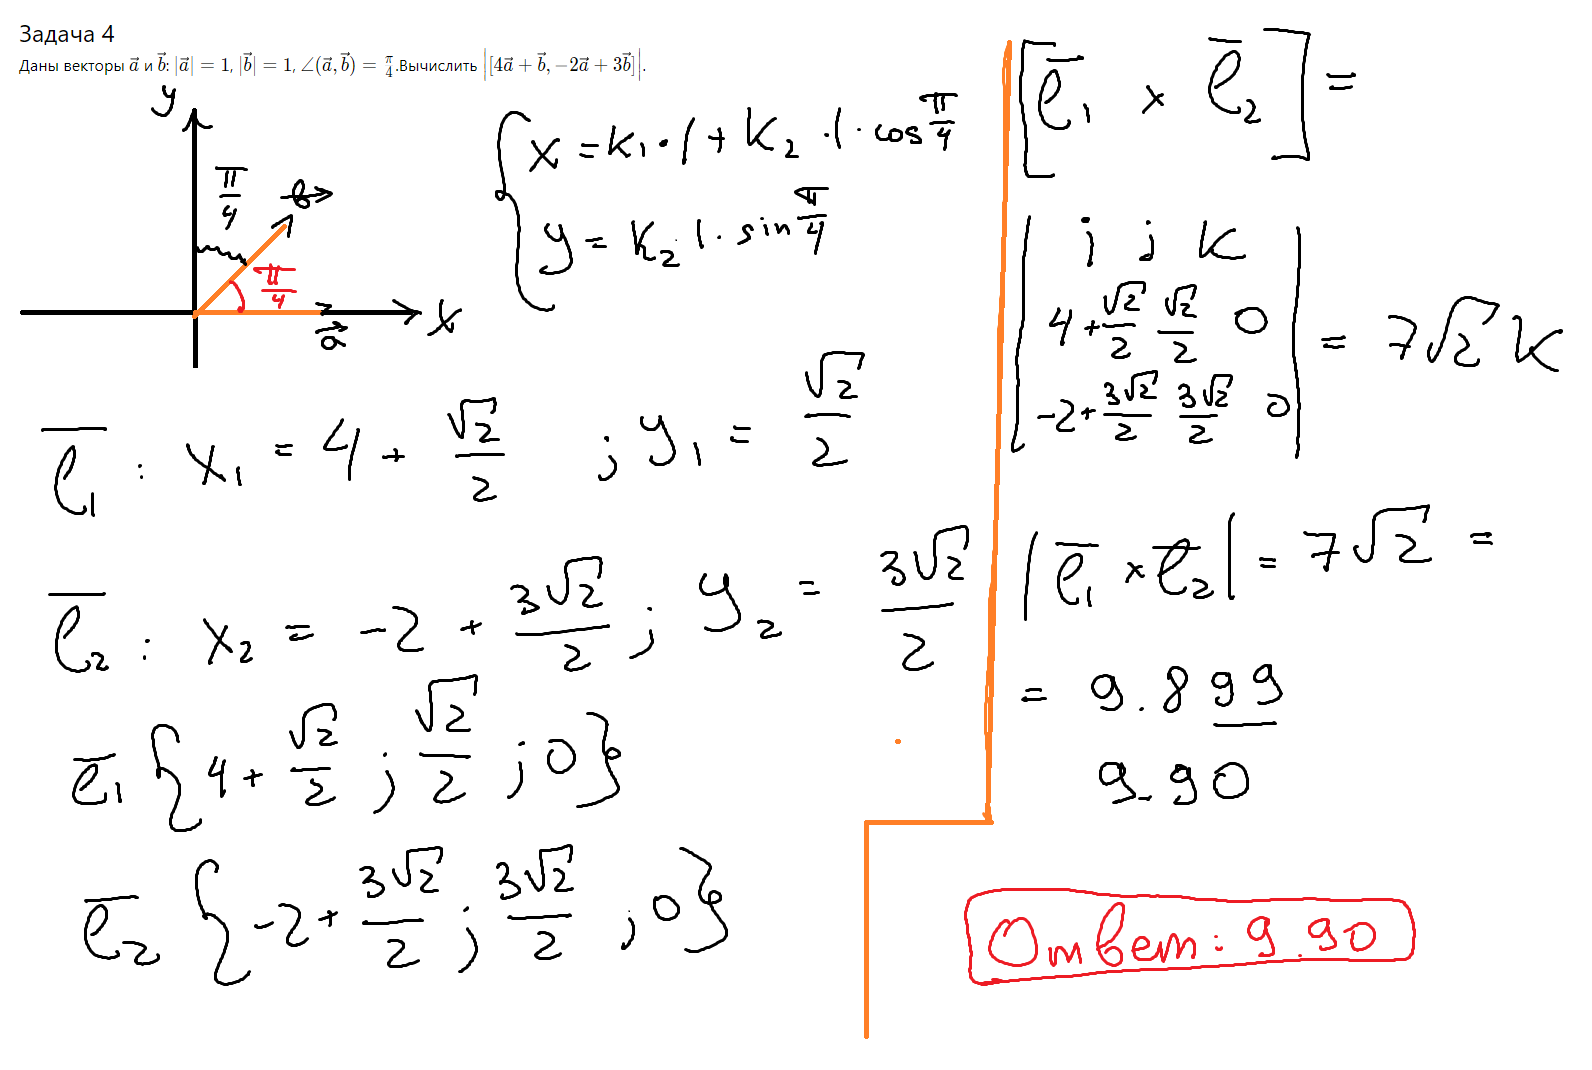 Задача 4
Даны векторы $\vec{a}$ и $\vec{b}$: $|\vec{a}| = 1$, $|\vec{b}| = 1$, $\angle(\vec{a}, \vec{b}) = \frac{\pi}{4}$.Вычислить $|[4\vec{a} + \vec{b}, -2\vec{a} + 3\vec{b}]|$.
y
π/4
b→
π/4
x
a→
{ x = k₁·1 + k₂·1·cos π/4
y = k₂·1·sin π/4
e̅₁ : x₁ = 4 + √2/2 ; y₁ = √2/2
e̅₂ : x₂ = -2 + 3√2/2 ; y₂ = 3√2/2
e̅₁ {4 + √2/2 ; √2/2 ; 0}
e̅₂ {-2 + 3√2/2 ; 3√2/2 ; 0}
[e̅₁ × e̅₂] =
| i j k
4+√2/2 √2/2 0
-2+3√2/2 3√2/2 0 | = 7√2 k
|e̅₁ × e̅₂| = 7√2 =
= 9.899
9.90
Ответ: 9.90